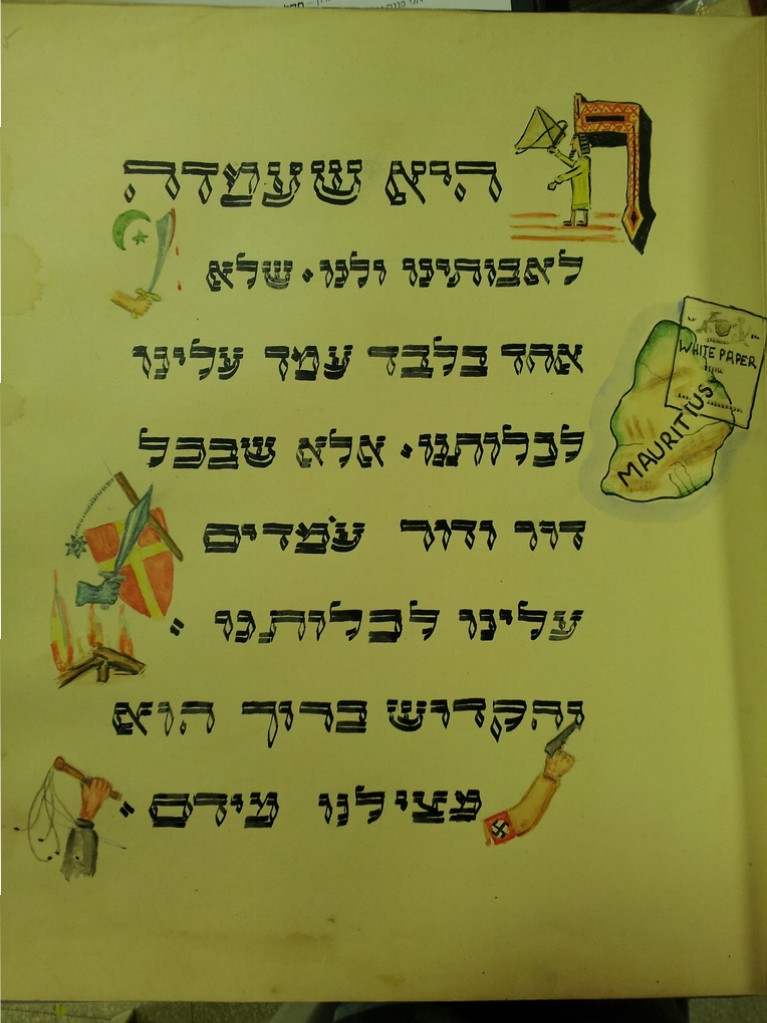 והיא שעמדה
לאבותינו ולנו. שלא
אחד בלבד עמד עלינו
WHITE PAPER
MAURITIUS
לכלותנו. אלא שבכל
דור ודור עֹמדים
עלינו לכלותנו:
והקדוש ברוך הוא
מצילנו מידם: